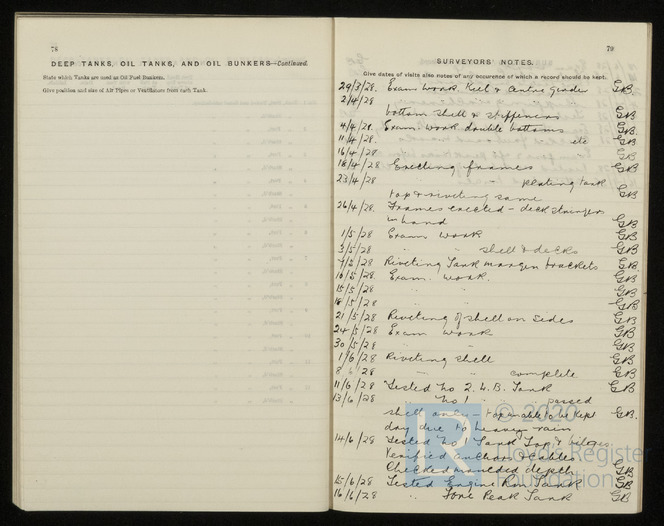 78
DEEP TANKS, OIL TANKS, AND OIL BUNKERS—Continued.
State which Tanks are used as Oil Fuel Bunkers.
Give position and size of Air Pipes or Ventilators from each Tank.
79
SURVEYORS' NOTES.
Give dates of visits also notes of any occurence of which a record should be kept.
29/3/28. Exam work. Keel & Centre girder GB
2/4/28
bottom shell & stiffeners GB
4/4/28. Exam. work double bottoms GB
11/4/28. " " " etc GB
16/4/28 GB
18/4/28 Erecting frames GB
23/4/28 " " - plating tank
top & riveting same GB
26/4/28. Frames erected - deck stringers
in hand GB
1/5/28 Exam work GB
3/5/28 " " shell & decks GB
7/5/28 Riveting Tank margin brackets GB
10/5/28. Exam. work. GB
15/5/28 " " GB
18/5/28 " " GB
21/5/28 Riveting of shell on sides GB
24/5/28 Exam work GB
30/5/28 " " GB
1/6/28 Riveting shell GB
8/6/28 " " complete GB
11/6/28 Tested No 2. W.B. Tank GB
13/6/28 " No 1 " " passed
shell only - top unable to be kept GB.
dry due to heavy rain
14/6/28 Tested No 1 Tank Top & bilges.
Verified anchors & cables
Checked moulded depth GB
15/6/28 Tested Engine Rm Tank GB
16/6/28 " Fore Peak Tank GB
© 2020
Lloyd's Register
Foundation